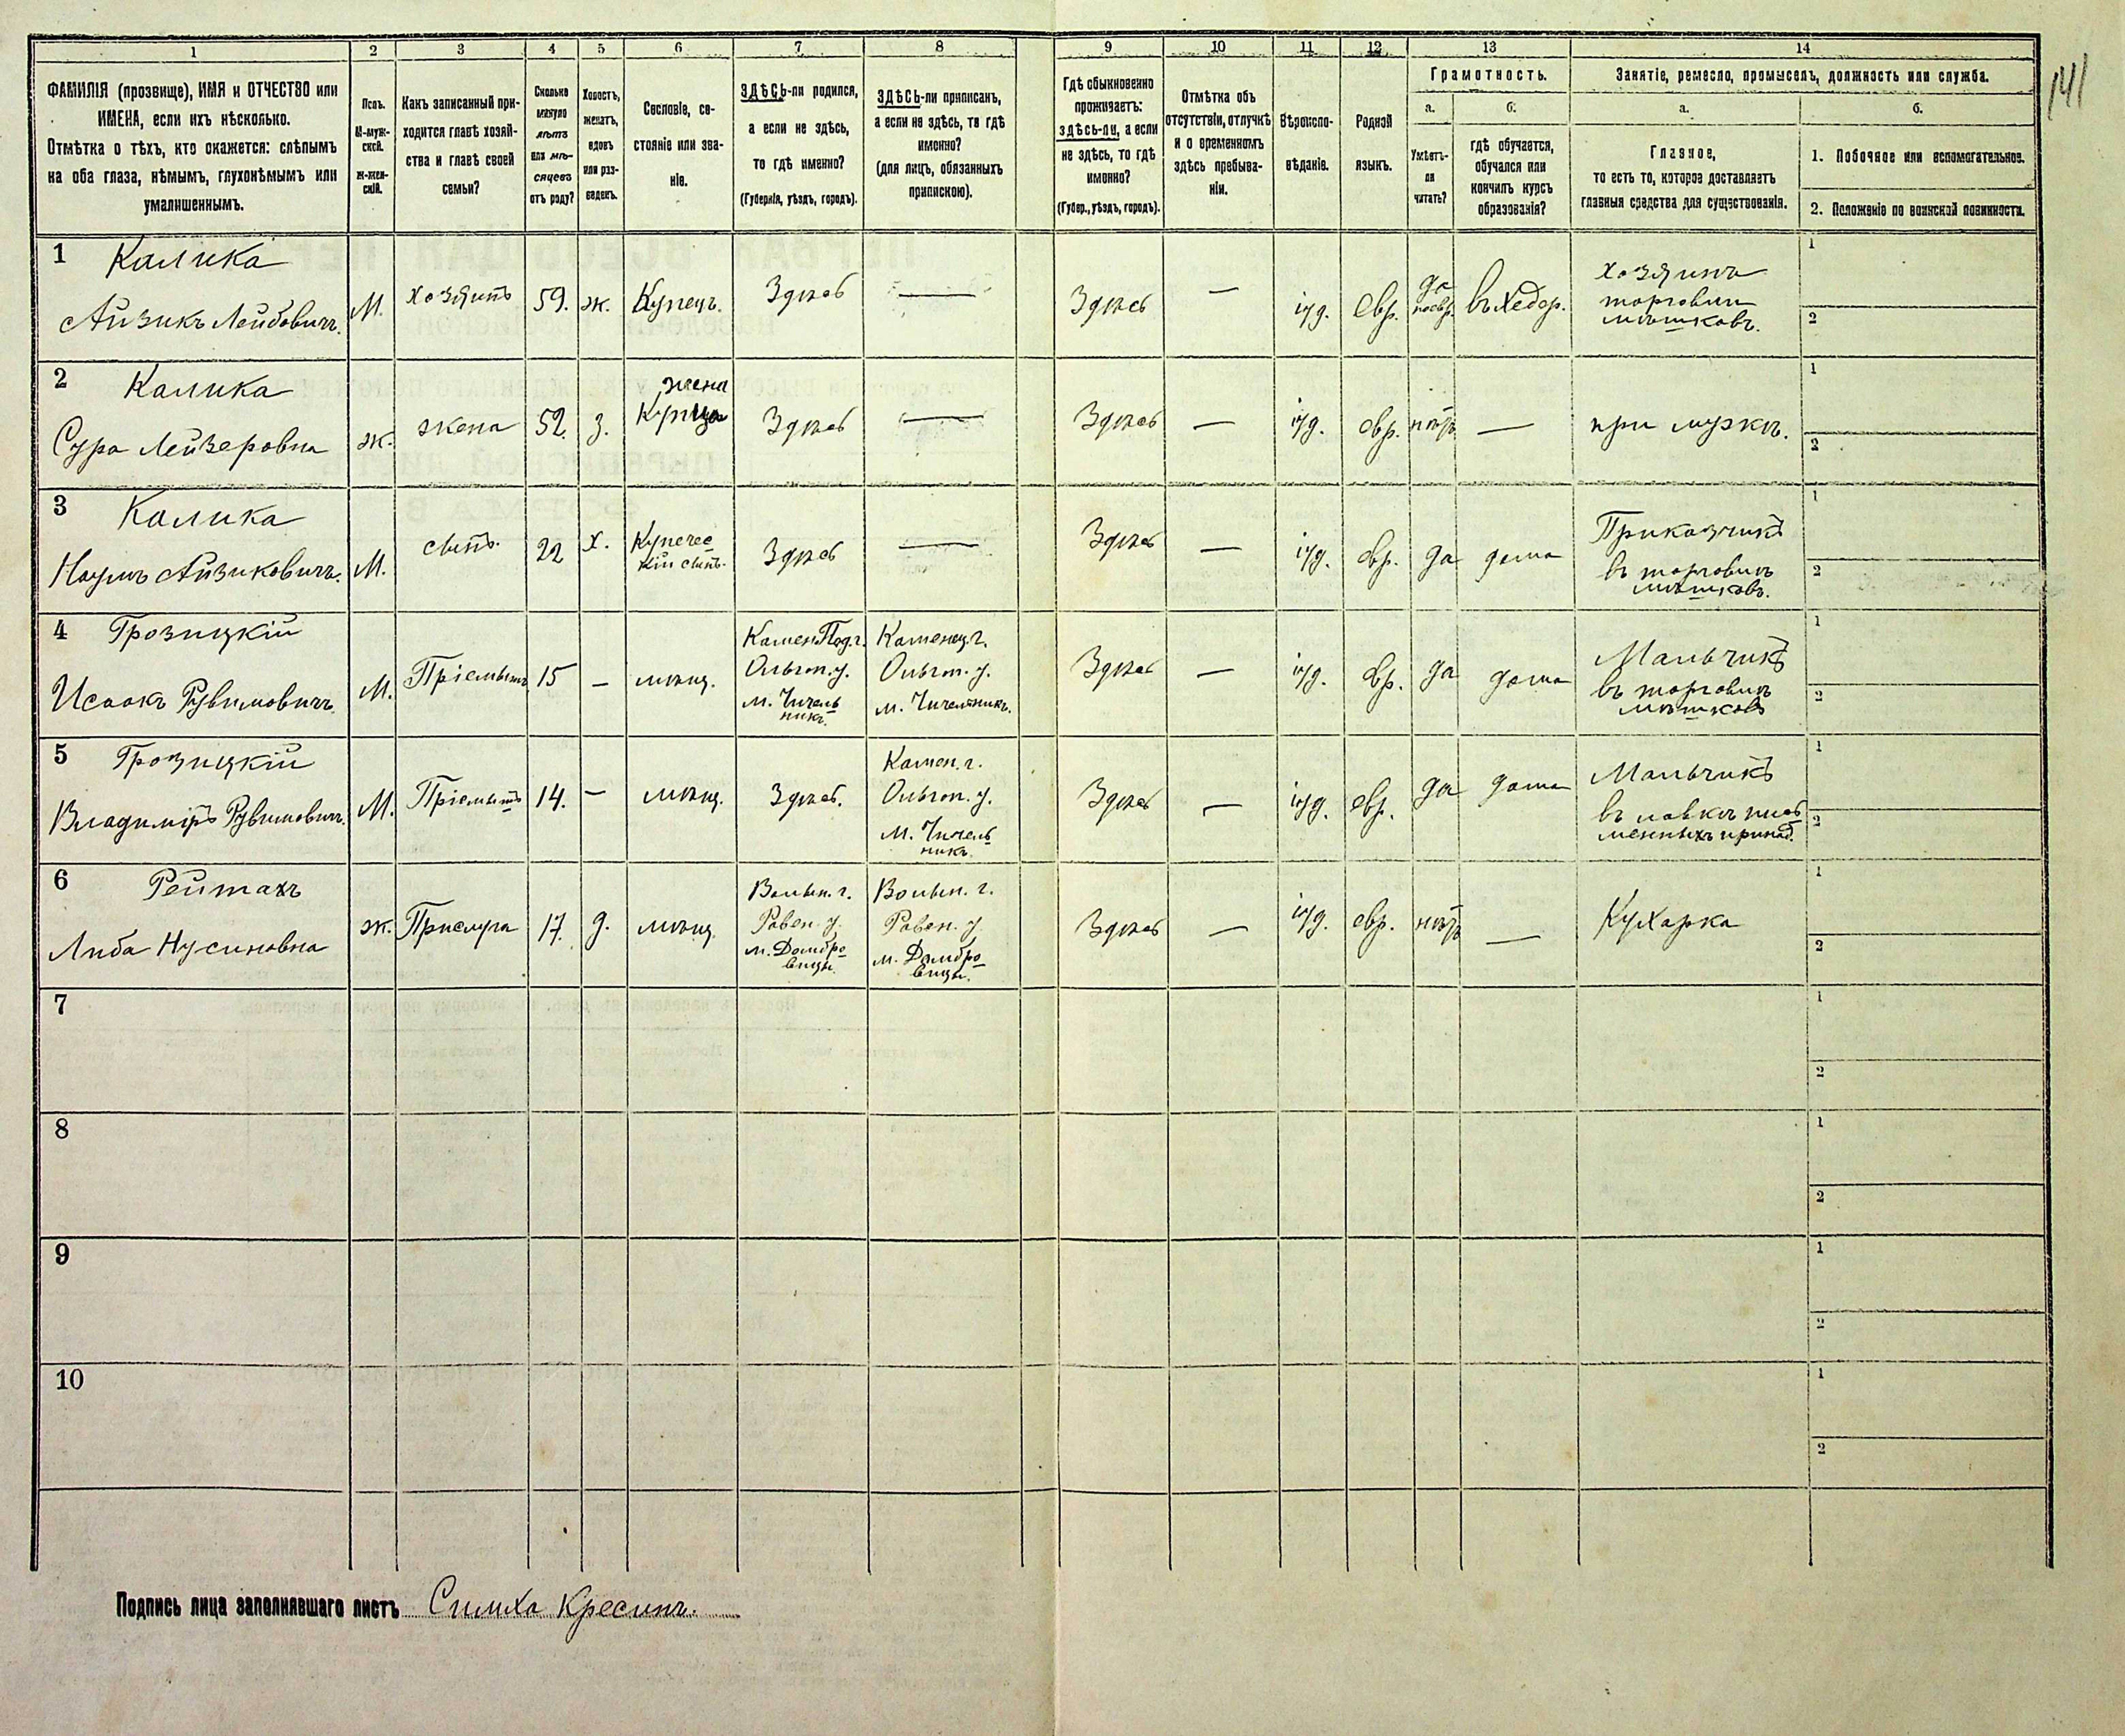 141
1 2 3 4 5 6 7 8 9 10 11 12 13 14
ФАМИЛІЯ (прозвище), ИМЯ и ОТЧЕСТВО или
ИМЕНА, если ихъ нѣсколько.
Отмѣтка о тѣхъ, кто окажется: слѣпымъ
на оба глаза, нѣмымъ, глухонѣмымъ или
умалишеннымъ.
Полъ.
М-муж-
ской.
ж-жен-
скій.
Какъ записанный при-
ходится главѣ хозяй-
ства и главѣ своей
семьи?
Сколько
минуло
лѣтъ
или мѣ-
сяцевъ
отъ роду?
Холостъ,
женатъ,
вдовъ
или раз-
веденъ.
Сословіе, со-
стояніе или зва-
ніе.
ЗДѢСЬ-ли родился,
а если не здѣсь,
то гдѣ именно?
(Губернія, уѣздъ, городъ).
ЗДѢСЬ-ли приписанъ,
а если не здѣсь, то гдѣ
именно?
(для лицъ, обязанныхъ
припискою).
Гдѣ обыкновенно
проживаетъ:
здѣсь-ли, а если
не здѣсь, то гдѣ
именно?
(Губер., уѣздъ, городъ).
Отмѣтка объ
отсутствіи, отлучкѣ
и о временномъ
здѣсь пребыва-
ніи.
Вѣроиспо-
вѣданіе.
Родной
языкъ.
Грамотность.
а.
Умѣетъ-
ли
читать?
б.
гдѣ обучается,
обучался или
кончилъ курсъ
образованія?
Занятіе, ремесло, промыселъ, должность или служба.
а.
Главное,
то есть то, которое доставляетъ
главныя средства для существованія.
б.
1. Побочное или вспомогательное.
2. Положеніе по воинской повинности.
1
Калика
Айзикъ Лейбовичъ.
М.
хозяинъ
59.
ж.
Купецъ.
Здѣсь
—
Здѣсь
—
іуд.
Евр.
да
поевр.
въ хедер.
хозяинъ
торговли
мѣшковъ.
1
2
2
Калика
Сура Лейзеровна
ж.
жена
52.
з.
жена
Купца
Здѣсь
—
Здѣсь
—
іуд.
евр.
нѣтъ
—
при мужѣ.
1
2
3
Калика
Наумъ Айзиковичъ.
М.
сынъ.
22
х.
Купечес
кій сынъ.
Здѣсь
—
Здѣсь
—
іуд.
евр.
да
дома
Приказчикъ
въ торговлѣ
мѣшковъ.
1
2
4
Грозицкій
Исаакъ Рувимовичъ.
М.
Пріемышъ
15
—
мѣщ.
Камен.Под.г.
Ольгоп.у.
м. Чичель
никъ.
Каменец.г.
Ольгоп. у.
м. Чичельникъ.
Здѣсь
—
іуд.
евр.
да
дома
Мальчикъ
въ торговлѣ
мѣшковъ
1
2
5
Грозицкій
Владиміръ Рувимовичъ.
М.
Пріемышъ
14.
—
мѣщ.
Здѣсь.
Камен. г.
Ольгоп. у.
м. Чичель
никъ.
Здѣсь
—
іуд.
евр.
да
дома
Мальчикъ
въ лавкѣ пись
менныхъ принад.
1
2
6
Рейтахъ
Либа Нусиновна
ж.
Прислуга
17.
д.
мѣщ.
Волын. г.
Ровен. у.
м. Домбро
вицы.
Волын. г.
Ровен. у.
м. Домбро
вицы.
Здѣсь
—
іуд.
евр.
нѣтъ
—
Кухарка
1
2
7
1
2
8
1
2
9
1
2
10
1
2
Подпись лица заполнявшаго листъ Симха Кресинъ.